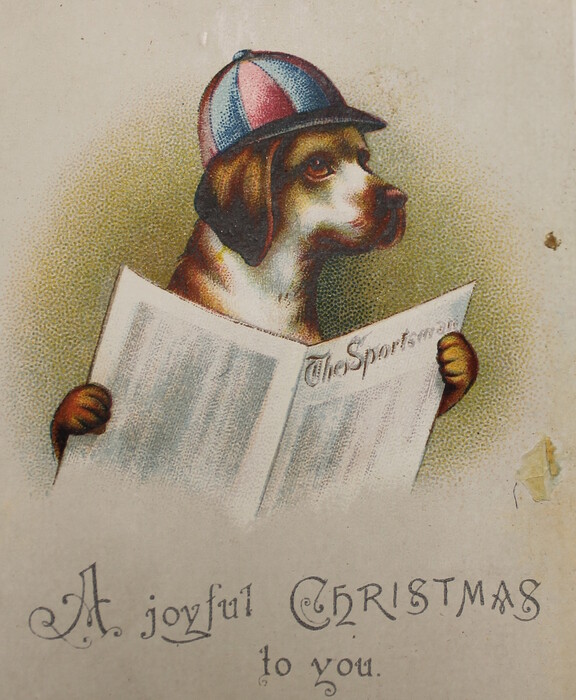 The Sportsman
A joyful CHRISTMAS
to you.